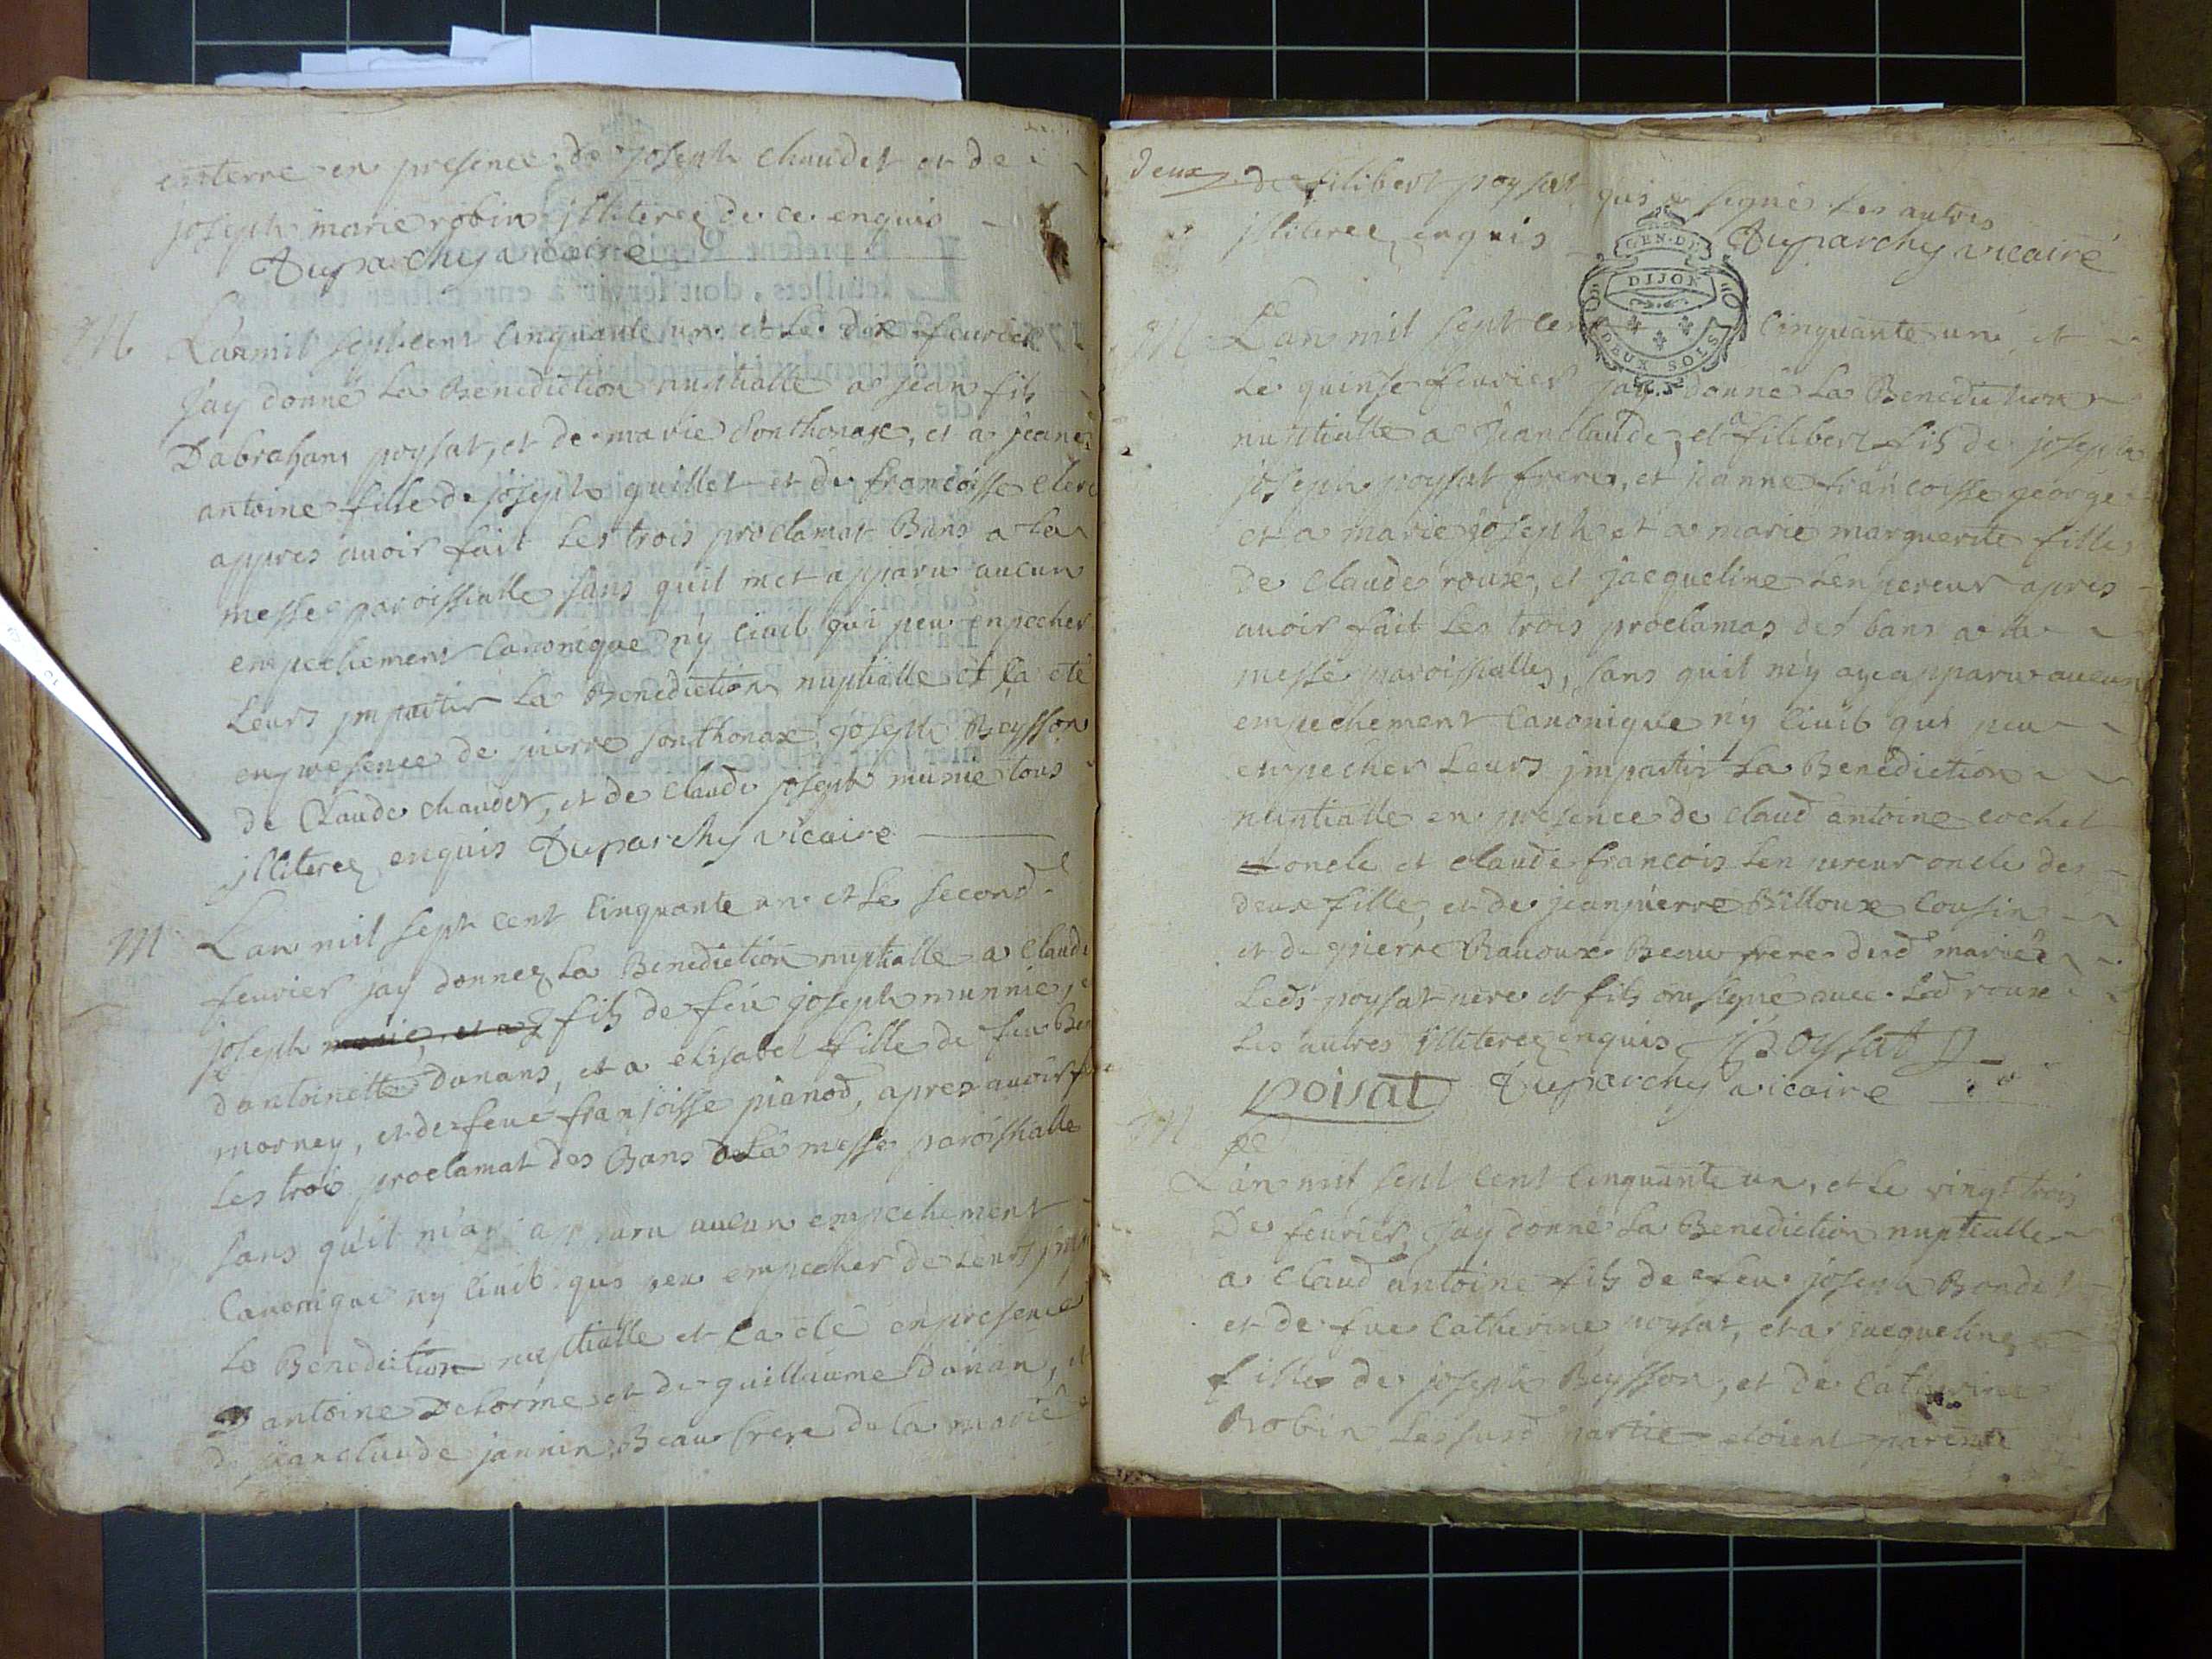 enterre en presence de joseph chaudet et de
joseph marie robin jlliterez de ce enquis
Duparchy vicaire
M Lan mil sept cent cinquante un et le dix feurier
jay donné La Benediction nuptialle a jean fils
Dabraham poysat, et de marie Sonthonax, et a jeane
antoine fille de joseph guillet et de francoisse clerc
appres auoir fait Les trois proclamat Bans a La
messe paroissialle sans quil met apparu aucun
empechement Canonique ny Ciuil qui peu enpecher
Leurs jmpartir La Benediction nuptialle et ça eté
en presence de pierre sonthonax, joseph Beysson
de Claude chaudet, et de Claude joseph munie tous
jlliterez enquis Duparchy vicaire
M Lan mil sept cent Cinquante un et Le second
feurier jay donnez La Benediction nuptialle a Claude
joseph fils de feu joseph munnie, et
dantoinette Dunans, et a elisabet fille de feu Ben
morney, et de feue franjoisse pianod, apres auoir f
Les trois proclamat des Bans a La messe paroissialle
sans qu'il m'ay apparu aucun empechement
Canonique ny Ciuil qui peu empecher de Leurs jmp
La Benediction nuptialle et ca eté en presence
D antoine Delorme et de guillaume Dunan, et
De jean claude jannin Beau frere de la mariée
Deux de filibert poysat qui a signé Les autres
jlliterez enquis Duparchy vicaire
GEN. DE DIJON
DEUX SOLS
M Lan mil sept cent Cinquante un, et
Le quinse feurier jay donné La Benediction
nuptialle a Jean claude, et a filibert fils de joseph
joseph poysat freres, et janne francoisse george
et a marie joseph et a marie marguerite filles
de Claude roux, et jacqueline Lenpereur apres
auoir fait Les trois proclamas des bans a la
messe paroissialle, sans quil m'y aye apparu aucun
empechement Canonique ny Ciuil qui peu
enpecher Leurs jmpartir La Benediction
nuptialle en presence de claud antoine cochet
oncle et claude francois Lenpereur oncle des
deux fille, et de jean pierre Billoux Cousin
et de pierre Rauoux Beau frere dusd mariée
Leds poysat pere et fils ont signé auec Led roux
Les autres jlliterez enquis Poysat
poisat Duparchy vicaire
M
Lan mil sept cent Cinquante un, et Le vingt trois
De feurier, jay donné La Benediction nuptialle
a Claud antoine fils de feu joseph Bondet
et de fue Catherine poysat, et a jacqueline
fille de joseph Beysson, et de Catherine
Robin Les susd partie etoient parents